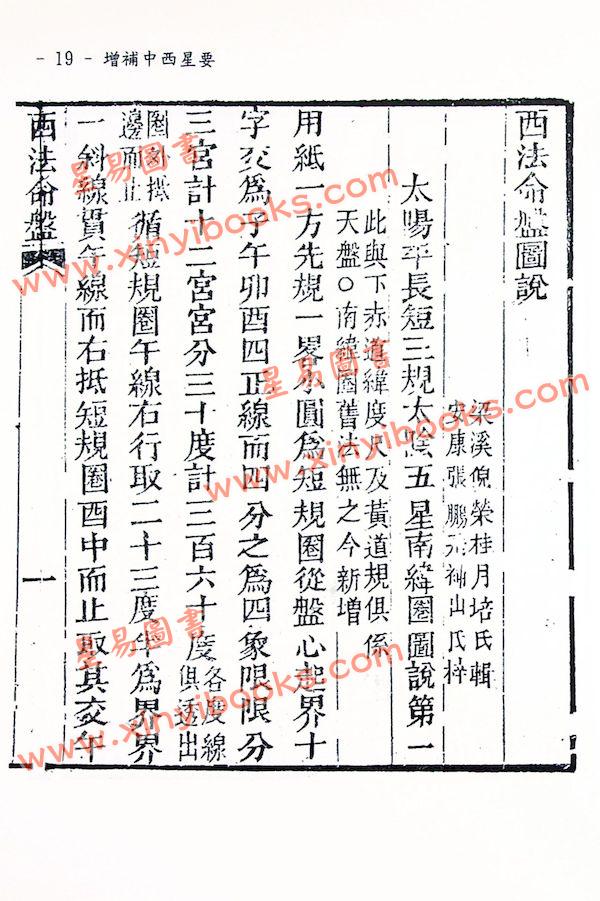 - 19 - 增補中西星要
西法命盤圖說
梁溪倪榮桂月培氏輯
安康張鵬元補山氏梓
太陽平長短三規太陰五星南緯圈圖說第一
此與下赤道緯度尺及黃道規俱係
天盤○南緯圈舊法無之今新增
用紙一方先規一畧小圓為短規圈從盤心起界十
字交為子午卯酉四正線而四分之為四象限限分
三宮計十二宮宮分三十度計三百六十度各度線
俱透出
圈外抵
邊而止循短規圈午線右行取二十三度半為界界
一斜線貫午線而右抵短規圈酉中而止取其交午
西法命盤
一
星易圖書
www.xinyibooks.com
星易圖書
www.xinyibooks.com
星易圖書
www.xinyibooks.com
星易圖書
www.xinyibooks.com